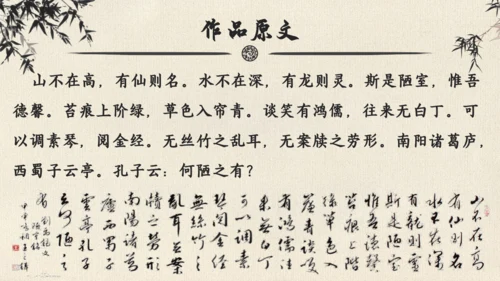 作品原文
山不在高，有仙则名。水不在深，有龙则灵。斯是陋室，惟吾
德馨。苔痕上阶绿，草色入帘青。谈笑有鸿儒，往来无白丁。可
以调素琴，阅金经。无丝竹之乱耳，无案牍之劳形。南阳诸葛庐，
西蜀子云亭。孔子云：何陋之有？
山不在高
有仙則名
水不在深
有龍則靈
斯是陋室
惟吾德馨
苔痕上階
綠草色入
簾青談笑
有鴻儒往
来無白丁
可以調素
琴閱金经
無絲竹之
亂耳無案
牘之勞形
南陽諸葛
廬西蜀子
雲亭孔子
云何陋之
有